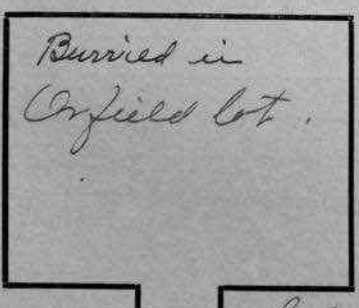 Burried in
Orfield lot.